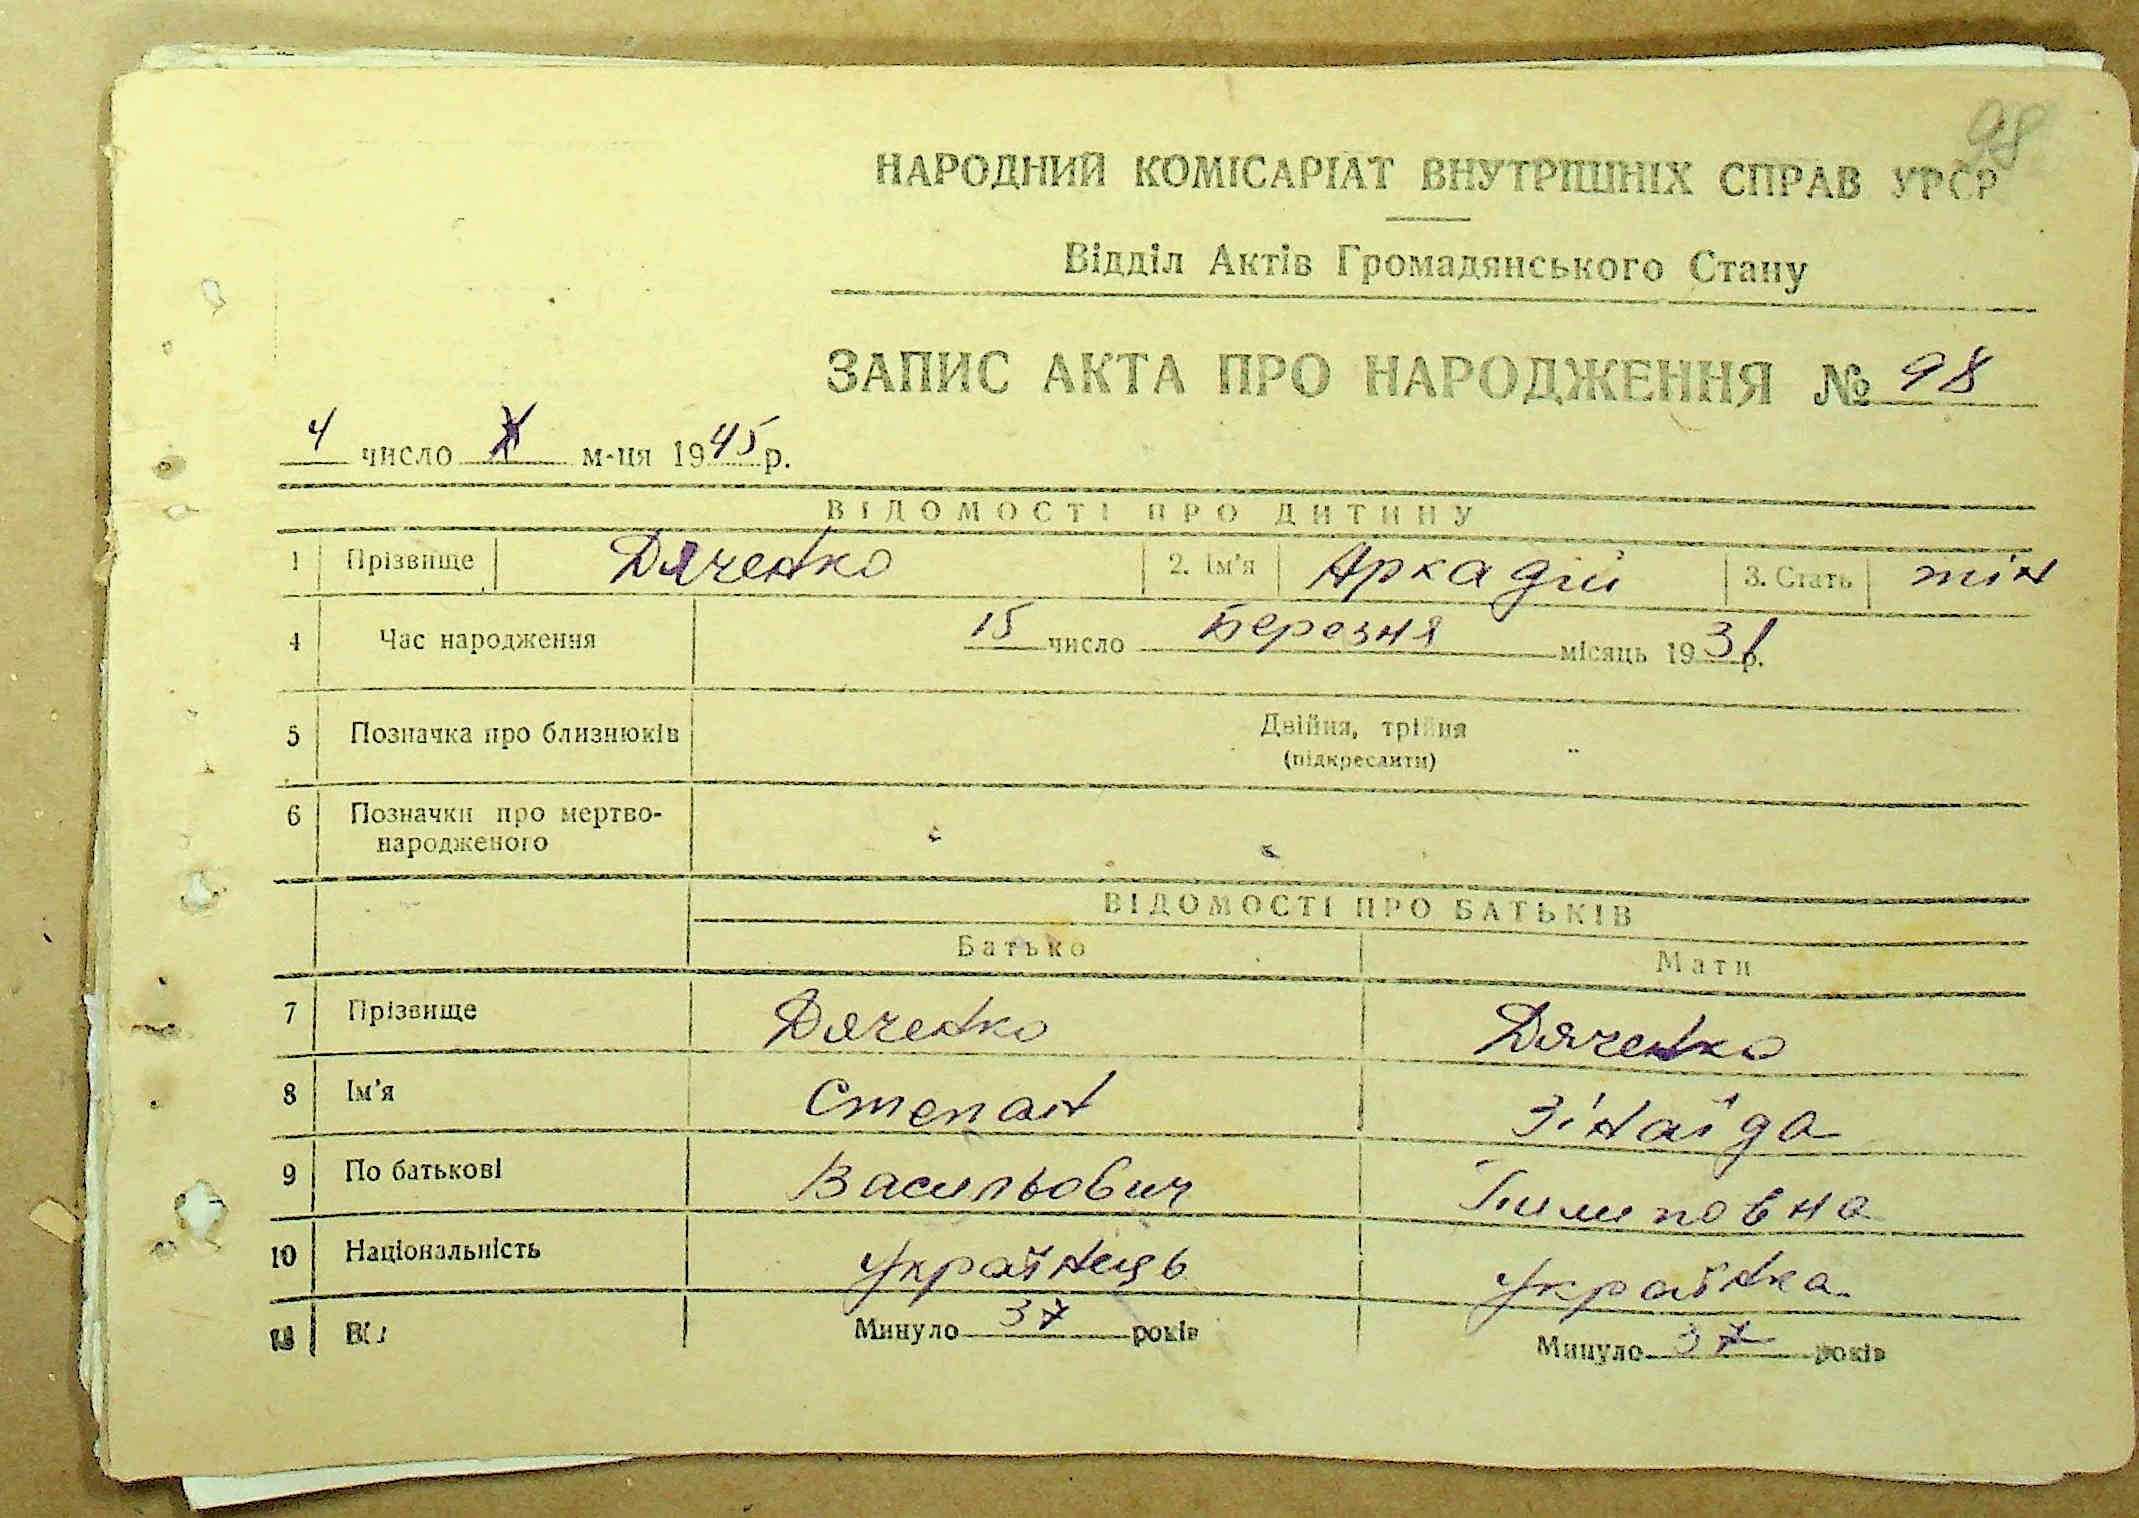 98
НАРОДНИЙ КОМІСАРІАТ ВНУТРІШНІХ СПРАВ УРСР
Відділ Актів Громадянського Стану
ЗАПИС АКТА ПРО НАРОДЖЕННЯ № 98
4 число X м-ця 1945 р.
ВІДОМОСТІ ПРО ДИТИНУ
1 Прізвище Дяченко 2. Ім'я Аркадій 3. Стать
4 Час народження 15 число Березня місяць 1931 р.
5 Позначка про близнюків Двійня, трійня
(підкреслити)
6 Позначки про мертво-
народженого
ВІДОМОСТІ ПРО БАТЬКІВ
Батько Мати
7 Прізвище Дяченко Дяченко
8 Ім'я Степан Зінаїда
9 По батькові Васильович Пилиповна
10 Національність Українець Українка
Минуло 37 років Минуло 37 років